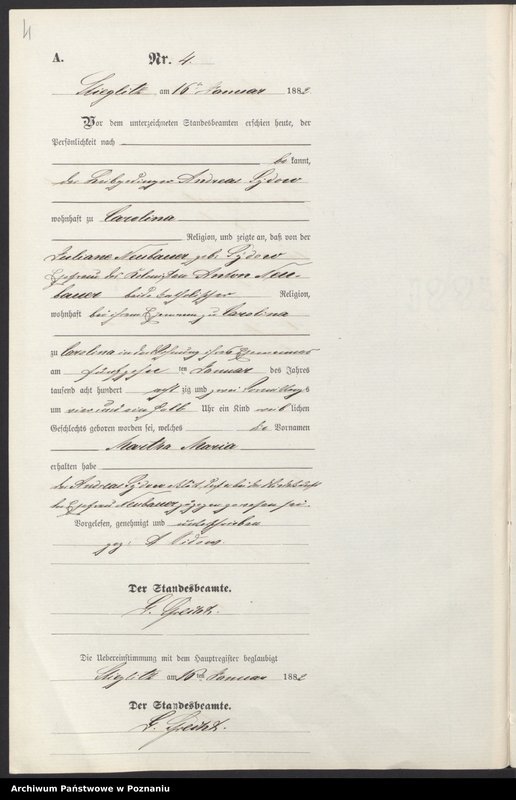 4
A. Nr. 4.
Stieglitz am 16ten Januar 1882
Vor dem unterzeichneten Standesbeamten erschien heute, der
Persönlichkeit nach
be kannt,
der Leibgedinger Andreas Sydow
wohnhaft zu Carolina
Religion, und zeigte an, daß von der
Juliane Neubauer geb. Sydow
Ehefrau des Anton Neu-
bauer beide katholischer Religion,
wohnhaft bei ihrem Ehemann zu Carolina
zu Carolina in der Wohnung ihres Ehemannes
am fünfzehnten Januar des Jahres
tausend acht hundert acht zig und zwei Vormittags
um vier und ein halb Uhr ein Kind weib lichen
Geschlechts geboren worden sei, welches die Vornamen
Martha Maria
erhalten habe
der Andreas Sydow erklärt, daß er bei der Niederkunft
der Ehefrau Neubauer zugegen gewesen sei.
Vorgelesen, genehmigt und unterschrieben
gez: A
Der Standesbeamte.
Die Uebereinstimmung mit dem Hauptregister beglaubigt
Stieglitz am 16ten Januar 1882
Der Standesbeamte.
Archiwum Państwowe w Poznaniu